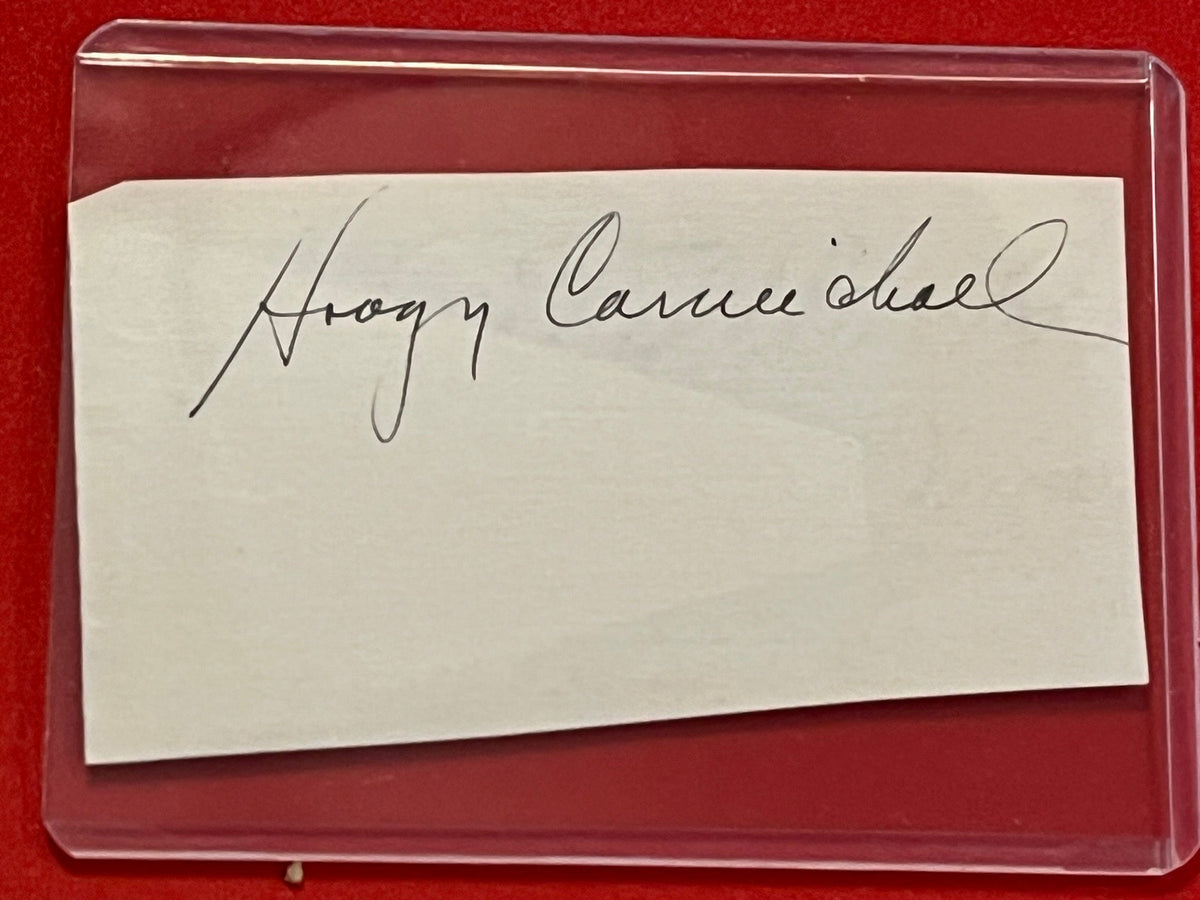 Hoagy Carmichael